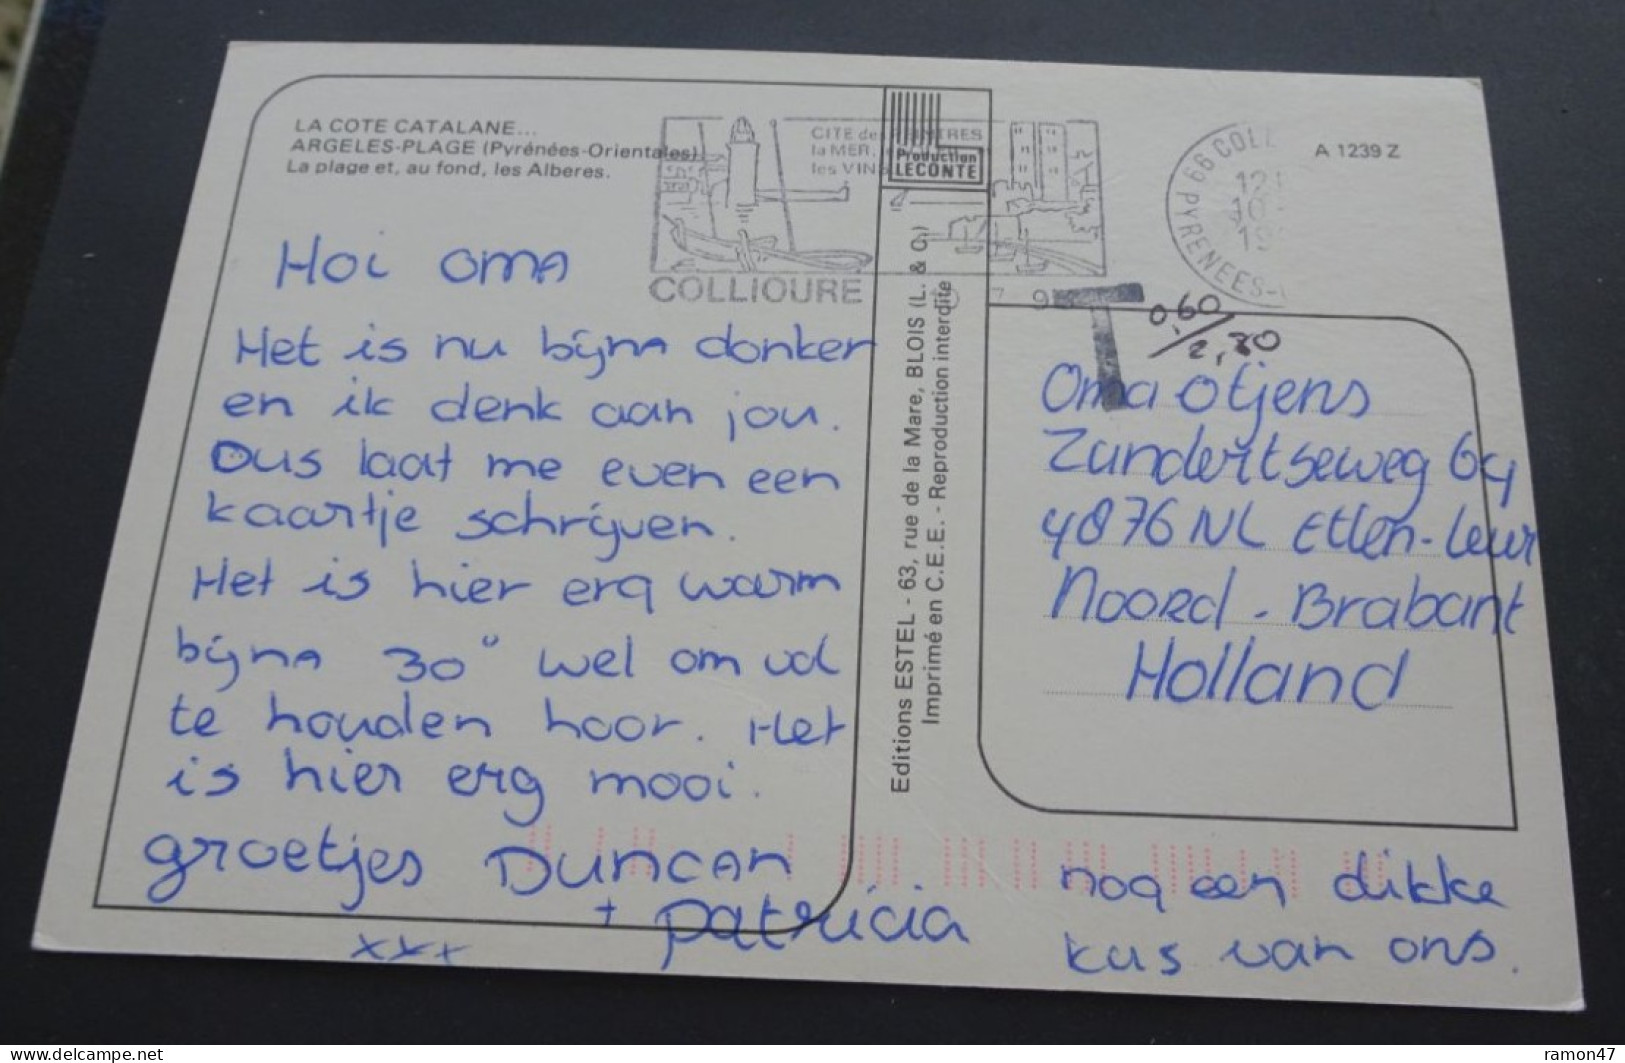 LA COTE CATALANE...
ARGELES-PLAGE (Pyrénées-Orientales)
La plage et, au fond, les Alberes.
CITE des PEINTRES
la MER,
les VINS
COLLIOURE
Production
LECONTE
66 COLL
PYRENEES-
A 1239 Z
T
0,60
2,80
Hoi oma
Het is nu bijna donker
en ik denk aan jou.
Dus laat me even een
kaartje schrijven.
Het is hier erg warm
bijna 30° wel om vol
te houden hoor. Het
is hier erg mooi.
groetjes Duncan
+ patricia
xxx
Editions ESTEL - 63, rue de la Mare, BLOIS (L. & C.)
Imprimé en C.E.E. - Reproduction interdite
Oma Otjens
Zundertseweg 64
4876 NL Etten-Leur
Noord-Brabant
Holland
nog een dikke
kus van ons.
delcampe.net
ramon47